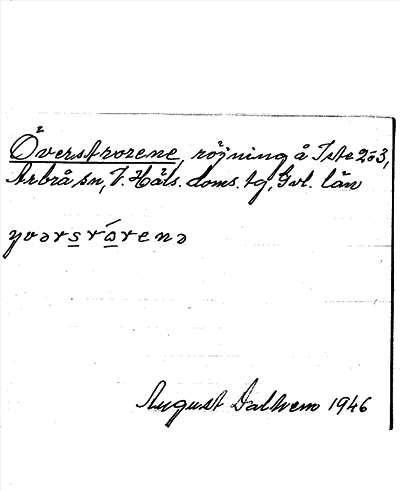 Överstrorene, röjning å Iste 2 o 3,
Arbrå sn, V. Häls. doms. tg, Gvl. län
yvərsrórenə
August Dalhem 1946